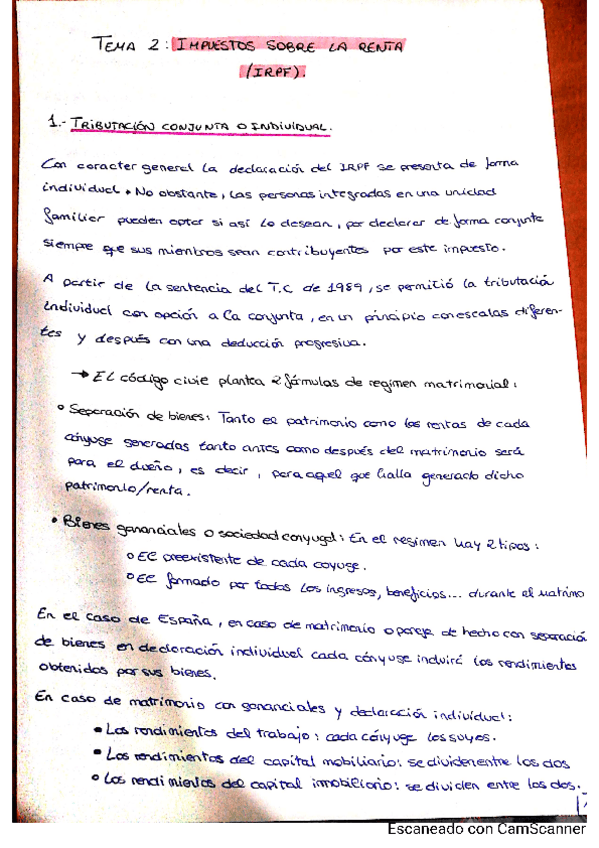 TEMA 2: IMPUESTOS SOBRE LA RENTA
(IRPF).
1.- TRIBUTACIÓN CONJUNTA O INDIVIDUAL.
Con caracter general la declaración del IRPF se presenta de forma
individual. No obstante, las personas integradas en una unidad
familiar pueden optar si así lo desean, por declarar de forma conjunta
siempre que sus miembros sean contribuyentes por este impuesto.
A partir de la sentencia del T.C de 1989, se permitió la tributación
individual con opción a la conjunta, en un principio con escalas diferen-
tes y después con una deducción progresiva.
→ El código civil plantea 2 fórmulas de regimen matrimonial:
• Separación de bienes: Tanto el patrimonio como las rentas de cada
cónyuge generadas tanto antes como después del matrimonio será
para el dueño, es decir, para aquel que halla generado dicho
patrimonio/renta.
• Bienes gananciales o sociedad conyugal: En el regimen hay 2 tipos:
o El preexistente de cada coyuge.
o El formado por todos los ingresos, beneficios... durante el matrimo
En el caso de España, en caso de matrimonio o pareja de hecho con separació
de bienes en declaración individual cada cónyuge incluirá los rendimientos
obtenidos por sus bienes.
En caso de matrimonio con gananciales y declaración individual:
• Los rendimientos del trabajo: cada cónyuge los suyos.
• Los rendimientos del capital mobiliario: se dividen entre los dos
• Los rendimientos del capital inmobiliario: se dividen entre los dos.
Escaneado con CamScanner